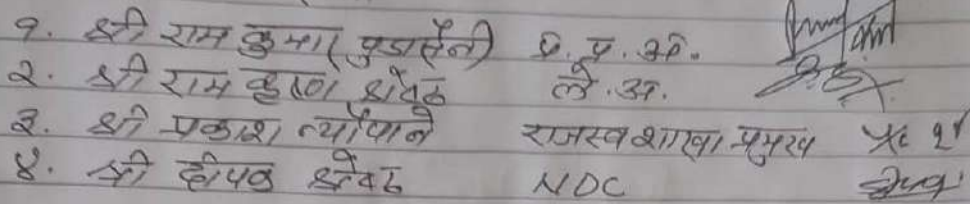 १. श्री राम कुमार पुडासैनी प्र. प्र. अ.
२. श्री राम कृष्ण श्रेष्ठ ले. अ.
३. श्री प्रकाश न्यौपाने राजस्व शाखा प्रमुख
४. श्री दीपक श्रेष्ठ NDC